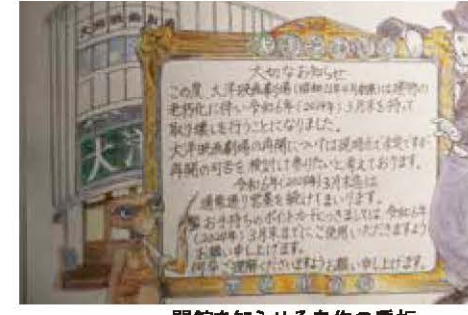 大洋映画劇場
大切なお知らせ
この度 大洋映画劇場(昭和21年4月創業)は建物の
老朽化に伴い令和6年(2024年)3月末を持って
取り壊しを行うことになりました。
大洋映画劇場の再開については現時点で未定ですが
再開の可否を検討して参りたいと考えております。
令和6年(2024年)3月末迄は
通常通り営業を続けてまいります。
お手持ちのポイントカードにつきましては 令和6年
(2024年)3月末までにご使用いただきますよう
お願い申し上げます。
何卒ご理解くださいますようお願い申し上げます。
大洋